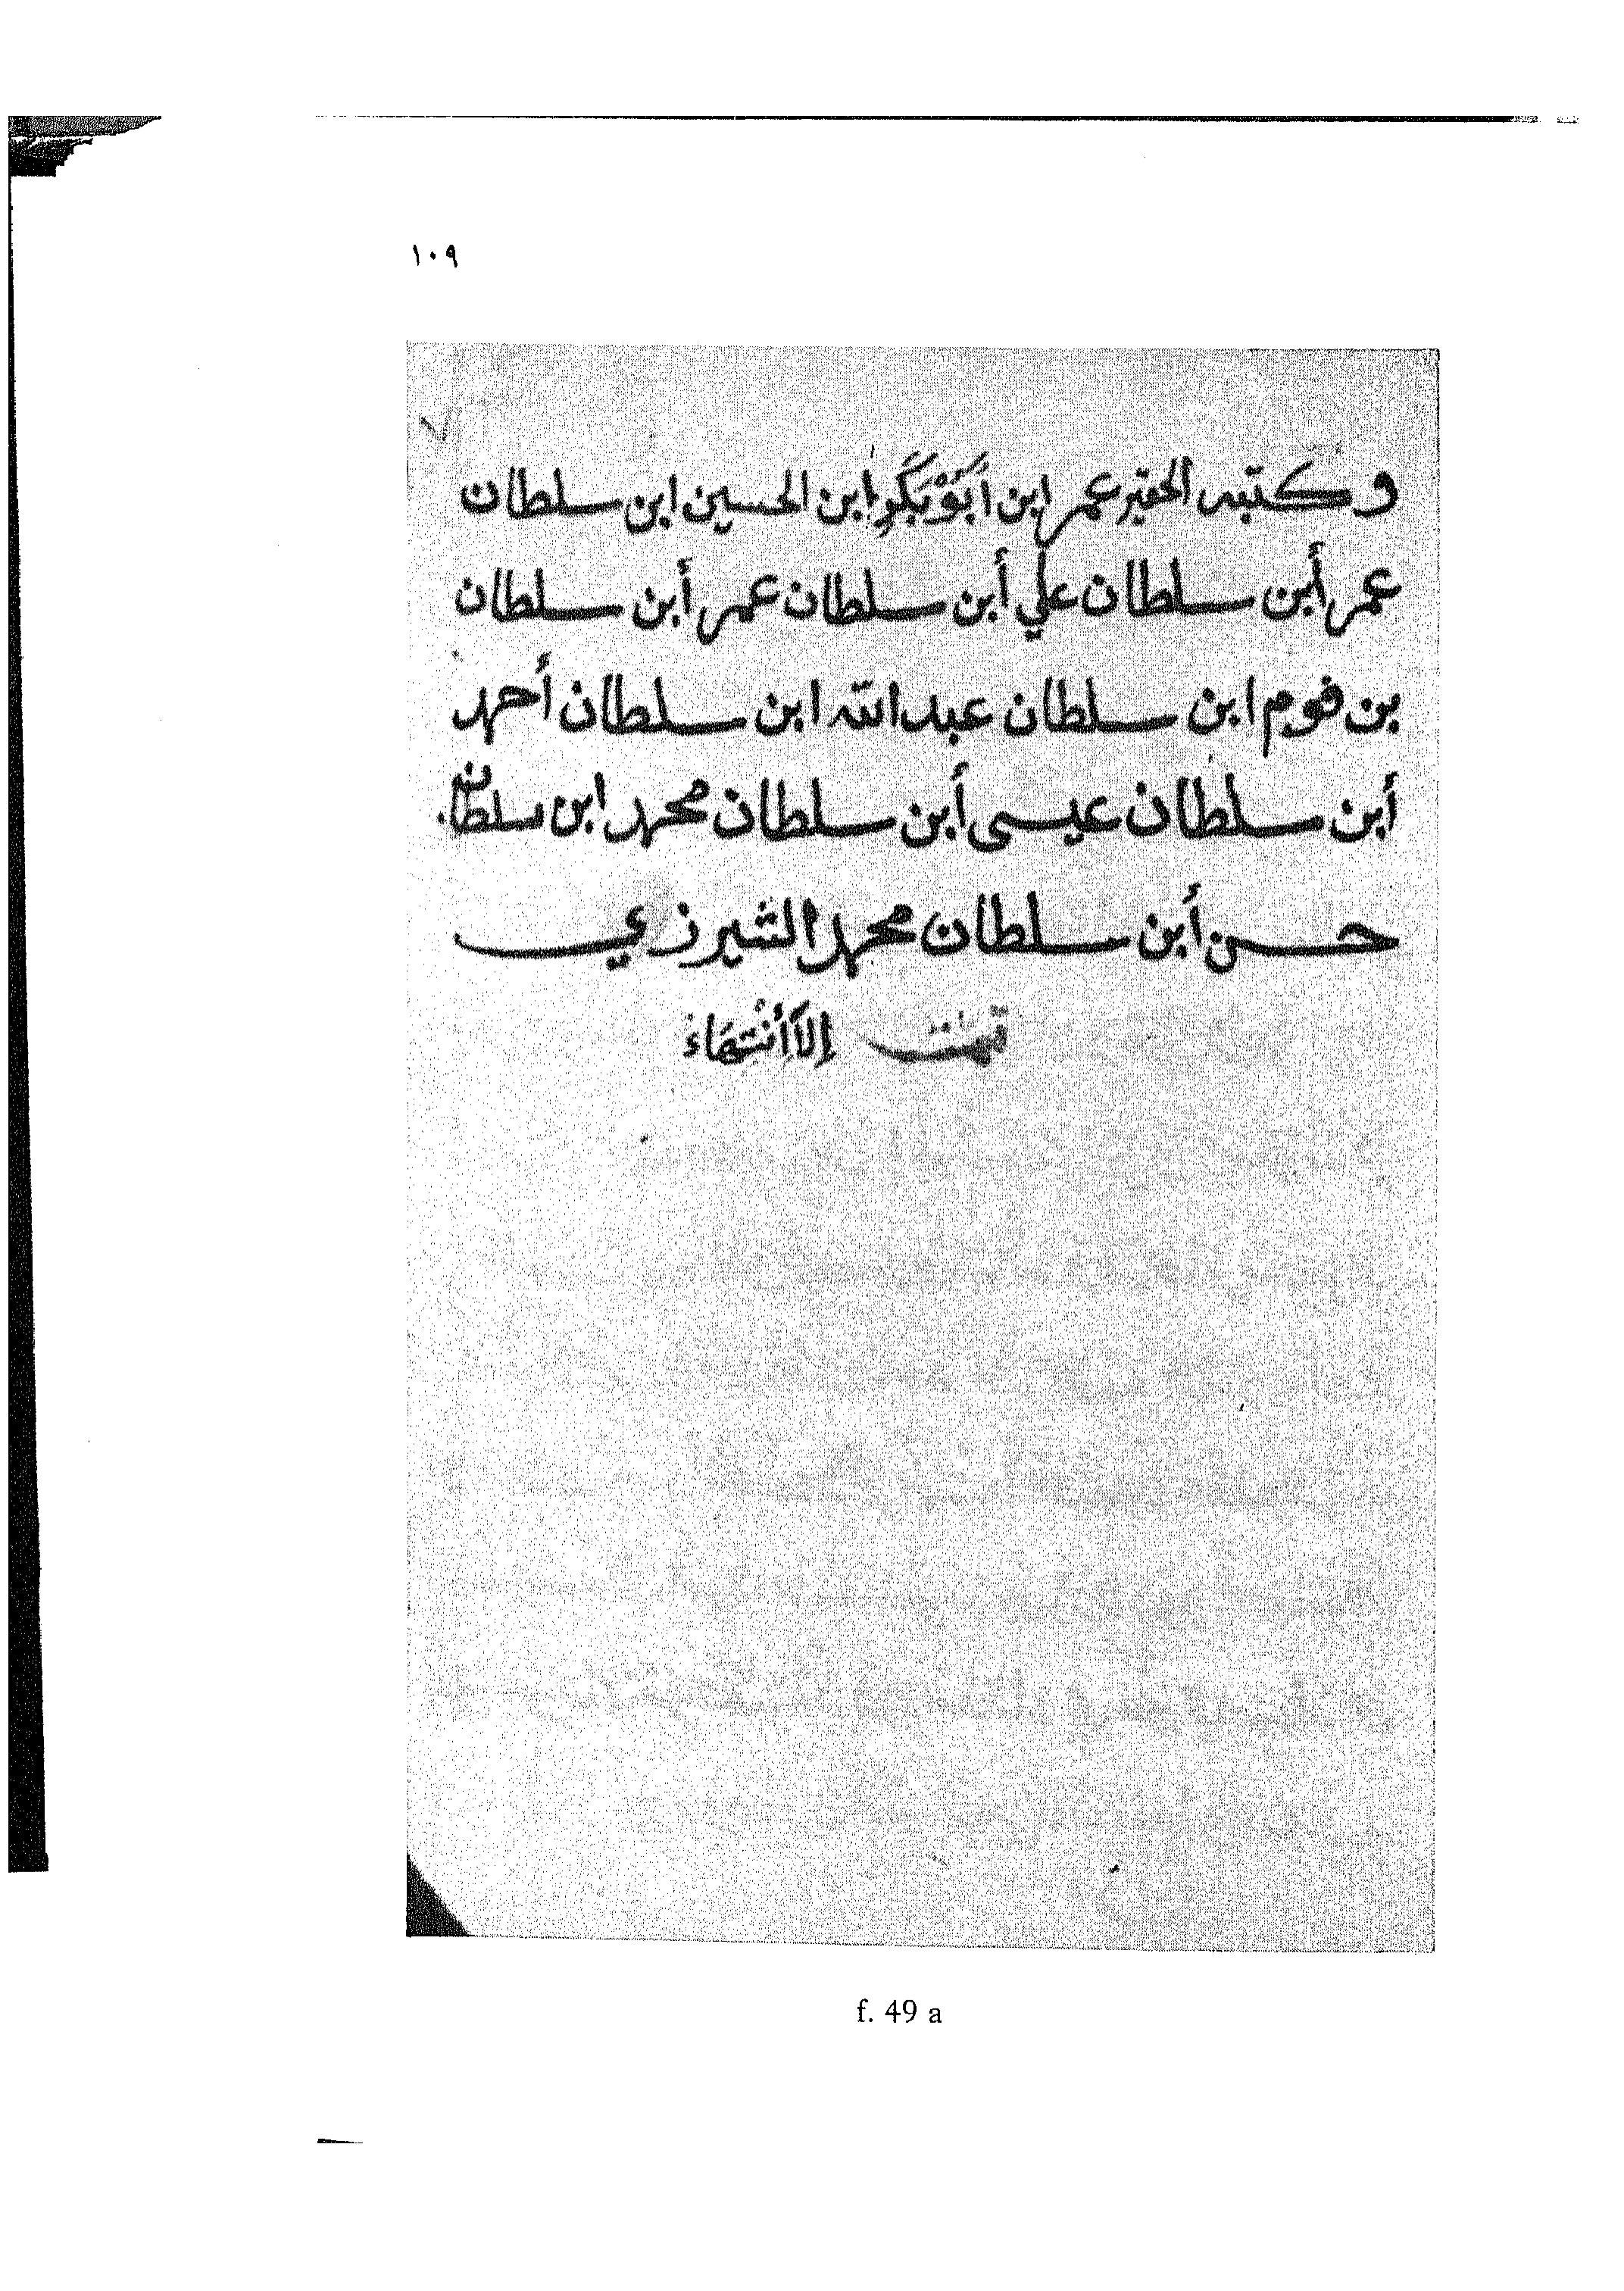 ١٠٩
وكتبه الحقير عمر ابن أَبَوْبَكَرِ ابن الحسين ابن سلطان
عمر أبن سلطان علي أبن سلطان عمر أبن سلطان
بن فوم ابن سلطان عبد الله ابن سلطان أحمد
أبن سلطان عيسى أبن سلطان محمد ابن سلطان
حسن أبن سلطان محمد الشيرزي
تمت إلاَأنْتِهَاءْ
f. 49 a